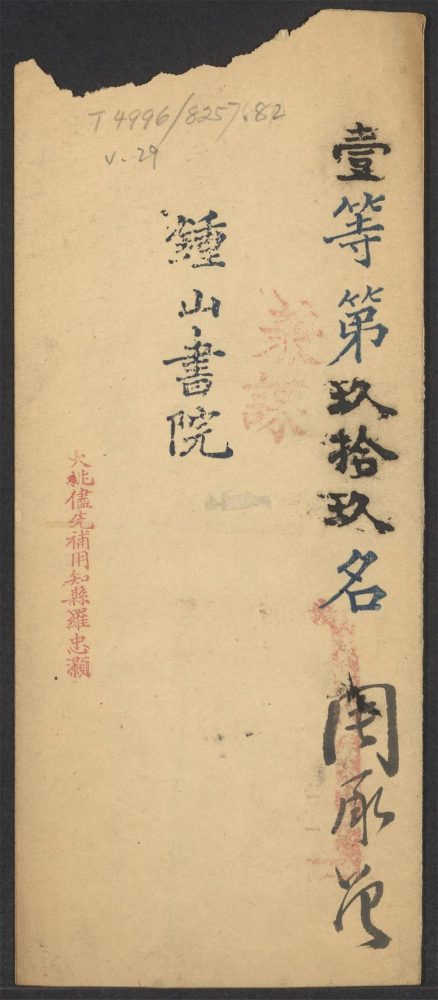 T 4996/8257.82
v. 29
壹等第玖拾玖名 周承
鍾山書院
大挑儘先補用知縣羅忠灝
課